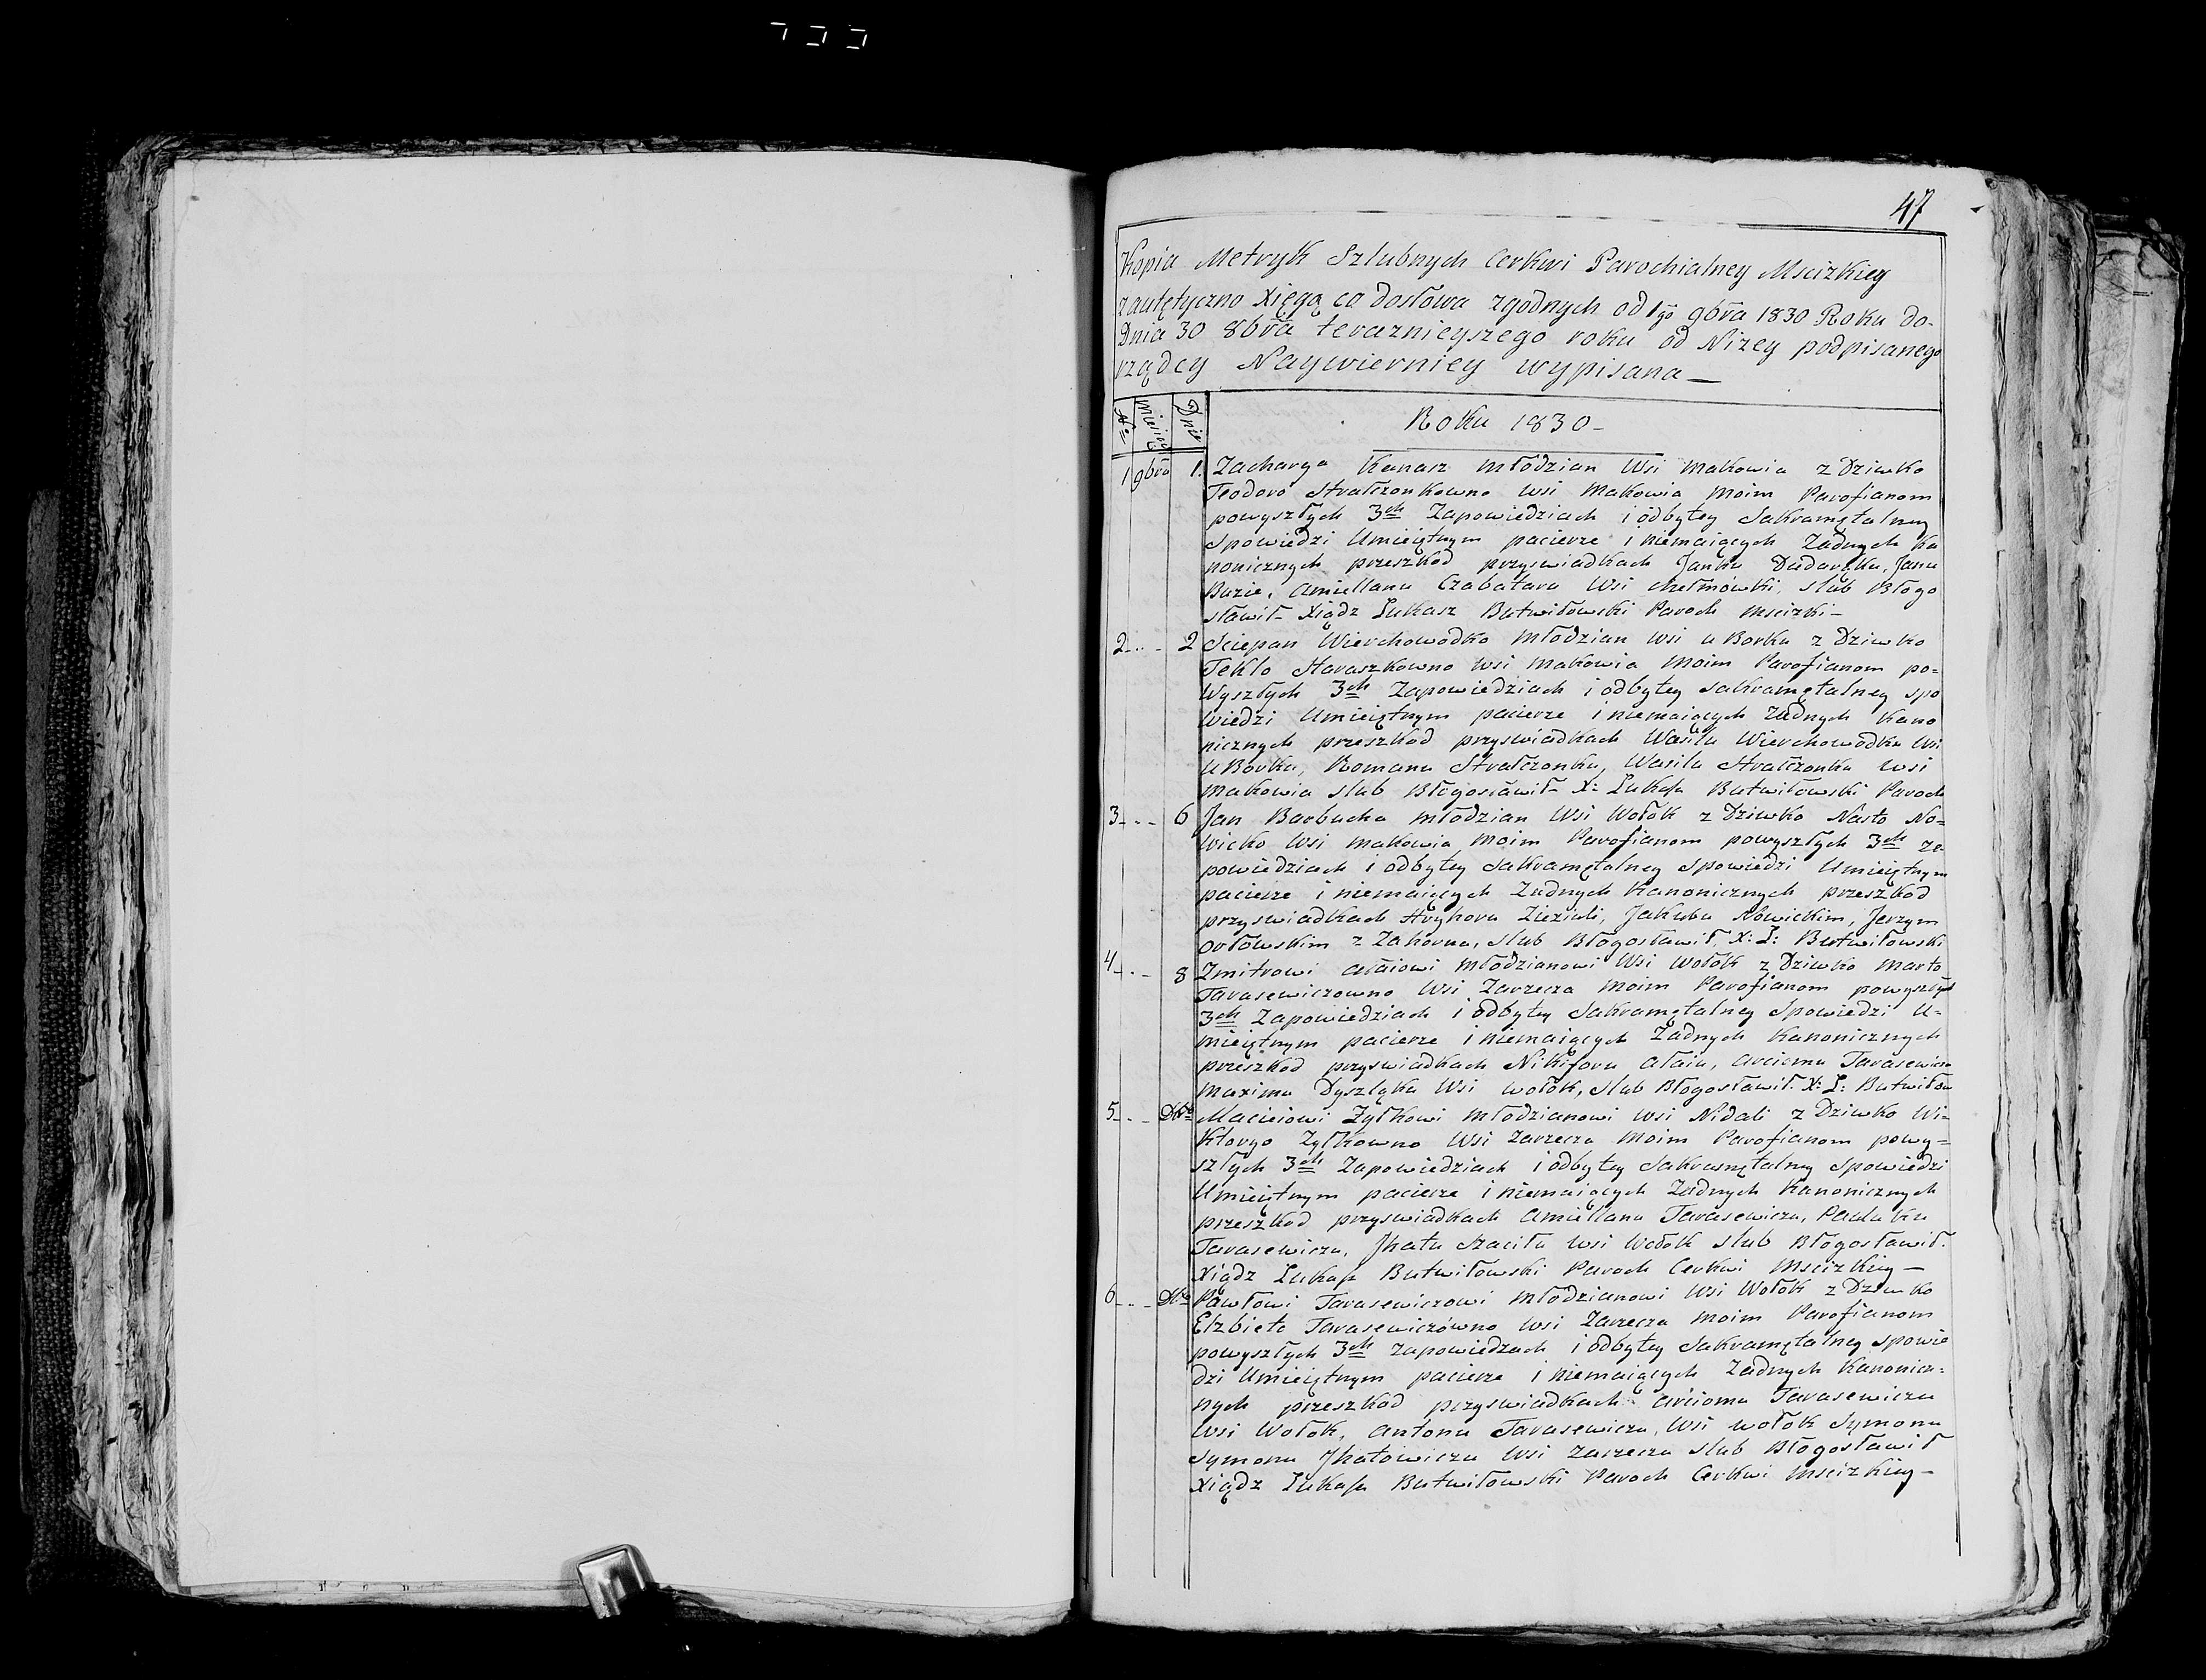 47
Kopia Metryk Szlubnych Cerkwi Parochialney Mscizkiey
zautętyczno Xięgą co dosłowa zgodnych od 1go 9bra 1830 Roku do-
Dnia 30 8bra teraznieyszego roku od Nizey podpisanego
rządcy Naywierniey wypisana—
No Miesiąc Dnie
Roku 1830-
1 9bra 1. Zacharya Kanasz młódzian Wsi Makowia z Dziwko
Teodoro Strałczonkowno wsi Makowia Moim Parofianom
powyszłych 3ch Zapowiedziach i odbytey Sakramętalney
Spowiedzi Umieiętnym pacierze i niemaiących Zadnych Ka
nonicznych przeszkod przyswiadkach Janka Dudaręka, Jana
Buzie, Amiellana Czabatara Wsi chełmówki, slub Błogo
sławił- Xiądz Łukasz Butwiłowski Paroch Mscizki-
2 2 Sciepan Wierchowodko Młodzian wsi u Borku z Dziwko
Teklo Haraszkowno wsi Makowia Moim Parofianom po-
Wyszłych 3ch Zapowiedziach i odbytey sakramętalney spo
wiedzi Umieiętnym pacierze i niemaiących zadnych Kano
nicznych przeszkod przyswiadkach Wasila Wierchowodka Wsi
U Borku, Romana Strałczonka, Wasila Strałczonka wsi
Makowia slub Błogosławił- X: Łukasz Butwiłowski Paroch
3 6 Jan Barbucha młodzian Wsi Wołok z Dziwko Nasto No=
wicko Wsi Makowia Moim Parofianom powyszłych 3ch za-
powiedziach i odbytey Sakramętalney Spowiedzi Umieiętnym
pacierze i niemaiących Zadnych Kanonicznych przeszkod
przyswiadkach Hryhora Zieziuli, Jakuba Nowickim, Jerzym
Orłowskim z Zahorna, slub Błogosławił, X: Ł: Butwiłowski
4 8 Zmitrowi ałaiowi Młodzianowi Wsi Wołok z Dziwko Marto
Tarasewiczowno Wsi Zarzecza Moim Parofianom powyszłych
3ch Zapowiedziach i odbytey Sakramętalney Spowiedzi U-
mieiętnym pacierze i niemaiących Zadnych Kanonicznych
przeszkod przyswiadkach Nikifora ałaia, arciema Tarasewicza
Maxima Dyszlęka Wsi wołok, slub Błogosławił. X: Ł: Butwiłow
5 Dto Macieiowi Zyłkowi Młodzianowi wsi Nidali z Dziwko Wi-
ktoryo Zyłkowno Wsi Zarzecza Moim Parofianom powy=
szłych 3ch Zapowiedziach i odbytey Sakramętalney Spowiedzi
Umieiętnym pacierze i niemaiących Zadnych Kanonicznych
przeszkod przyswiadkach Amiellana Tarasewicza, Paula Ku
Tarasewicza, Jhata Szaciła wsi Wołok slub Błogosławił.
Xiądz Łukasz Butwiłowski Paroch Cerkwi Mscizkiey—
6 Dto Pawłowi Tarasewiczowi Młodzianowi Wsi Wołok z Dziwko
Elzbieto Tarasewiczówno wsi Zarzecza Moim Parofianom
powyszłych 3ch zapowiedzach i odbytey Sakramętalney Spowie
dzi Umieiętnym pacierze i niemaiących Zadnych Kanonicz=
nych przeszkod przyswiadkach arcioma Tarasewicza
Wsi Wołok, antona Tarasewicza, Wsi wołok Symona
Symona Jhatowicza wsi Zarzecza slub Błogosławił
Xiądz Łukasz Butwiłowski Paroch Cerkwi Mscizkiey-